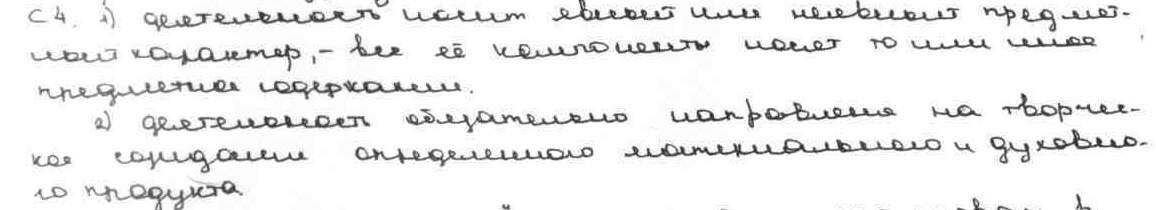 С4. 1) деятельность носит явный или неявный предмет-
ный характер, - все её компоненты носят то или иное
предметное содержание.
2) деятельность обязательно направлена на творчес-
кое созидание определенного материального и духовно-
го продукта.